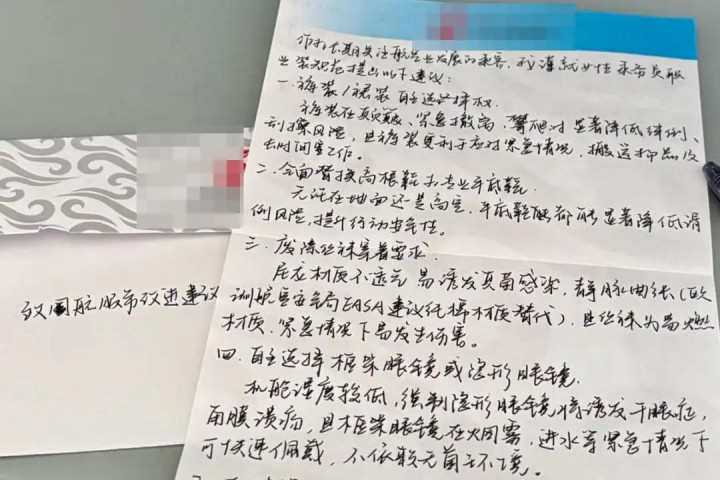 作为长期关注航空业发展的乘客,我谨就女性乘务员职
业装规范提出以下建议:
一.裤装/裙装自主选择权.
裤装在颠簸、紧急撤离、攀爬时显著降低绊倒、
刮擦风险,且裤装更利于应对紧急情况,搬运物品及
长时间客工作。
二.全面替换高根鞋为专业平底鞋.
无论在地面还是高空,平底鞋能都能显著降低滑
倒风险,提升行动安全性。
三.废除丝袜穿着要求.
尼龙材质不透气易诱发真菌感染,静脉曲张(欧
洲航空安全局EASA建议纯棉材质替代),且丝袜为易燃
材质,紧急情况下易发生伤害。
四.自主选择框架眼镜或隐形眼镜.
机舱湿度较低,强制隐形眼镜将诱发干眼症,
角膜溃疡,且框架眼镜在火因雾、进水等紧急情况下
可快速佩戴,不依赖无菌环境。
致国航服饰改进建议